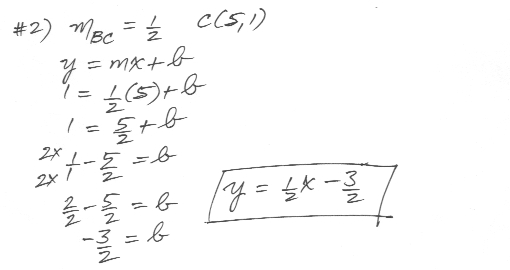 #2) m_BC = 1/2 C(5,1)
y = mx + b
1 = 1/2 (5) + b
1 = 5/2 + b
2x/2x 1/1 - 5/2 = b
2/2 - 5/2 = b
-3/2 = b
y = 1/2 x - 3/2